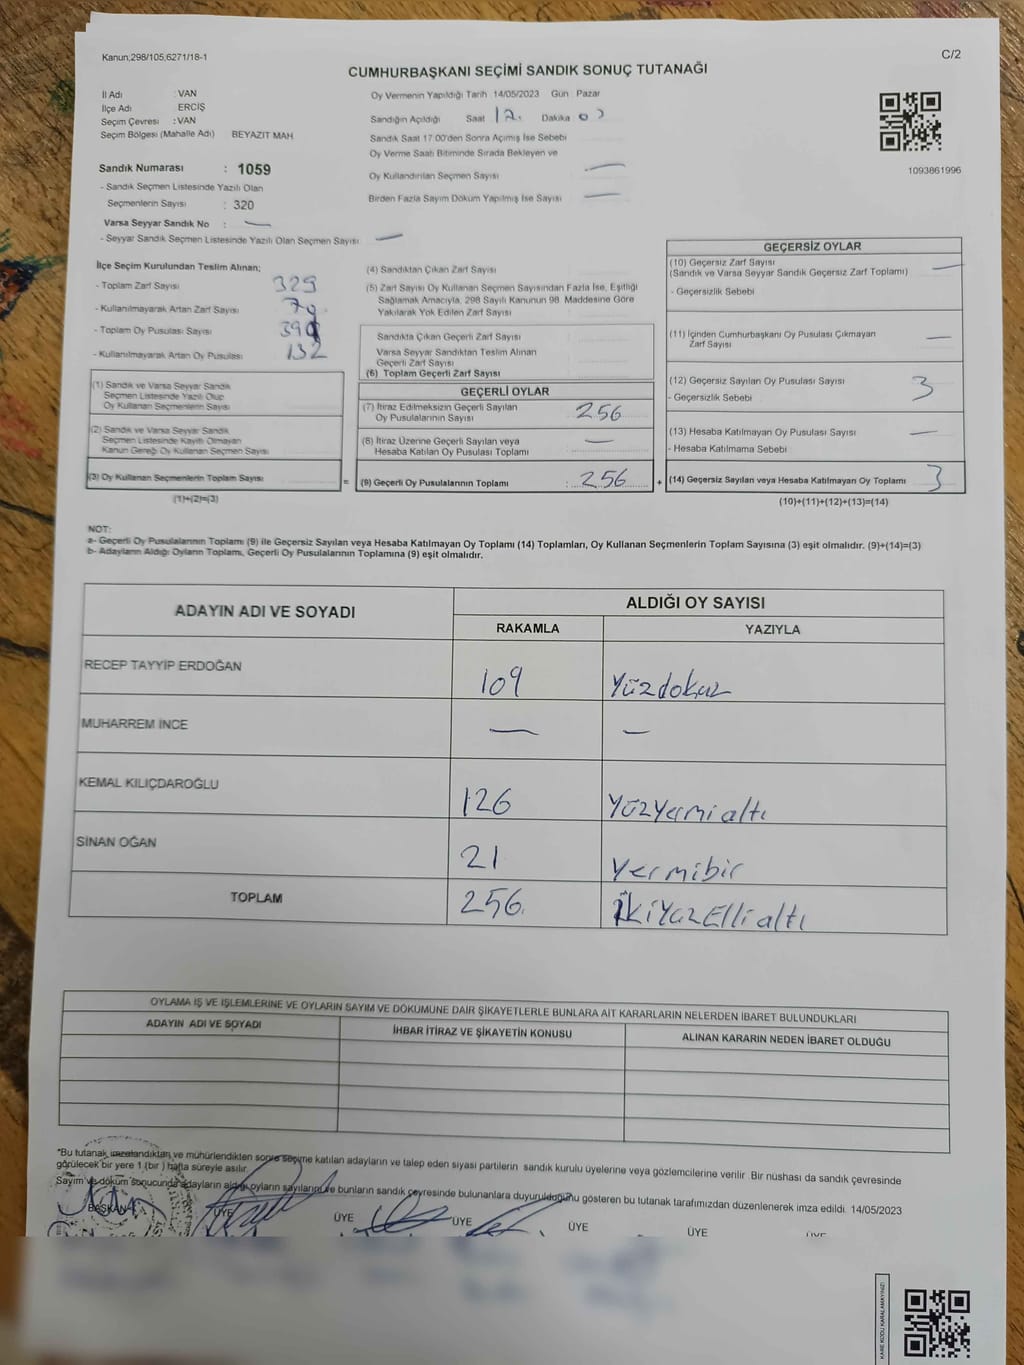 Kanun;298/105;6271/18-1
C/2
CUMHURBAŞKANI SEÇİMİ SANDIK SONUÇ TUTANAĞI
İl Adı : VAN
İlçe Adı : ERCİŞ
Seçim Çevresi : VAN
Seçim Bölgesi (Mahalle Adı) BEYAZIT MAH
Oy Vermenin Yapıldığı Tarih 14/05/2023 Gün Pazar
Sandığın Açıldığı Saat Dakika
Sandık Saat 17.00'den Sonra Açımış İse Sebebi
Oy Verme Saati Bitiminde Sırada Bekleyen ve
Oy Kullandırılan Seçmen Sayısı —
Birden Fazla Sayım Döküm Yapılmış İse Sayısı —
1093861996
Sandık Numarası : 1059
- Sandık Seçmen Listesinde Yazılı Olan
Seçmenlerin Sayısı : 320
Varsa Seyyar Sandık No : —
- Seyyar Sandık Seçmen Listesinde Yazılı Olan Seçmen Sayısı —
İlçe Seçim Kurulundan Teslim Alınan;
- Toplam Zarf Sayısı 329
- Kullanılmayarak Artan Zarf Sayısı
- Toplam Oy Pusulası Sayısı
- Kullanılmayarak Artan Oy Pusulası 132
(1) Sandık ve Varsa Seyyar Sandık
Seçmen Listesinde Yazılı Olup
Oy Kullanan Seçmenlerin Sayısı
(2) Sandık ve Varsa Seyyar Sandık
Seçmen Listesinde Kayıtlı Olmayan
Kanun Gereği Oy Kullanan Seçmen Sayısı
(3) Oy Kullanan Seçmenlerin Toplam Sayısı
(1)+(2)=(3)
=
(4) Sandıktan Çıkan Zarf Sayısı
(5) Zarf Sayısı Oy Kullanan Seçmen Sayısından Fazla İse, Eşitliği
Sağlamak Amacıyla, 298 Sayılı Kanunun 98. Maddesine Göre
Yakılarak Yok Edilen Zarf Sayısı
Sandıkta Çıkan Geçerli Zarf Sayısı
Varsa Seyyar Sandıktan Teslim Alınan
Geçerli Zarf Sayısı
(6) Toplam Geçerli Zarf Sayısı
GEÇERLİ OYLAR
(7) İtiraz Edilmeksizin Geçerli Sayılan
Oy Pusulalarının Sayısı 256
(8) İtiraz Üzerine Geçerli Sayılan veya
Hesaba Katılan Oy Pusulası Toplamı —
(9) Geçerli Oy Pusulalarının Toplamı : 256
+
GEÇERSİZ OYLAR
(10) Geçersiz Zarf Sayısı
(Sandık ve Varsa Seyyar Sandık Geçersiz Zarf Toplamı) —
- Geçersizlik Sebebi
(11) İçinden Cumhurbaşkanı Oy Pusulası Çıkmayan
Zarf Sayısı —
(12) Geçersiz Sayılan Oy Pusulası Sayısı 3
- Geçersizlik Sebebi
(13) Hesaba Katılmayan Oy Pusulası Sayısı —
- Hesaba Katılmama Sebebi
(14) Geçersiz Sayılan veya Hesaba Katılmayan Oy Toplamı 3
(10)+(11)+(12)+(13)=(14)
NOT:
a- Geçerli Oy Pusulalarının Toplamı (9) ile Geçersiz Sayılan veya Hesaba Katılmayan Oy Toplamı (14) Toplamları, Oy Kullanan Seçmenlerin Toplam Sayısına (3) eşit olmalıdır. (9)+(14)=(3)
b- Adayların Aldığı Oyların Toplamı, Geçerli Oy Pusulalarının Toplamına (9) eşit olmalıdır.
ADAYIN ADI VE SOYADI
ALDIĞI OY SAYISI
RAKAMLA YAZIYLA
RECEP TAYYİP ERDOĞAN 109 Yüzdokuz
MUHARREM İNCE — —
KEMAL KILIÇDAROĞLU 126 Yüzyermialtı
SİNAN OĞAN 21 Yermibir
TOPLAM 256 İkiYüzEllialtı
OYLAMA İŞ VE İŞLEMLERİNE VE OYLARIN SAYIM VE DÖKÜMÜNE DAİR ŞİKAYETLERLE BUNLARA AİT KARARLARIN NELERDEN İBARET BULUNDUKLARI
ADAYIN ADI VE SOYADI İHBAR İTİRAZ VE ŞİKAYETİN KONUSU ALINAN KARARIN NEDEN İBARET OLDUĞU
*Bu tutanak imzalandıktan ve mühürlendikten sonra seçime katılan adayların ve talep eden siyasi partilerin sandık kurulu üyelerine veya gözlemcilerine verilir Bir nushası da sandık çevresinde
görülecek bir yere 1 (bir ) hafta süreyle asılır.
Sayım ve döküm sonucunda adayların aldığı oyların sayılarını ve bunların sandık çevresinde bulunanlara duyurulduğunu gösteren bu tutanak tarafımızdan düzenlenerek imza edildi. 14/05/2023
BAŞKAN ÜYE ÜYE ÜYE ÜYE ÜYE ÜYE
KARE KODU KARALAMAYINIZ!